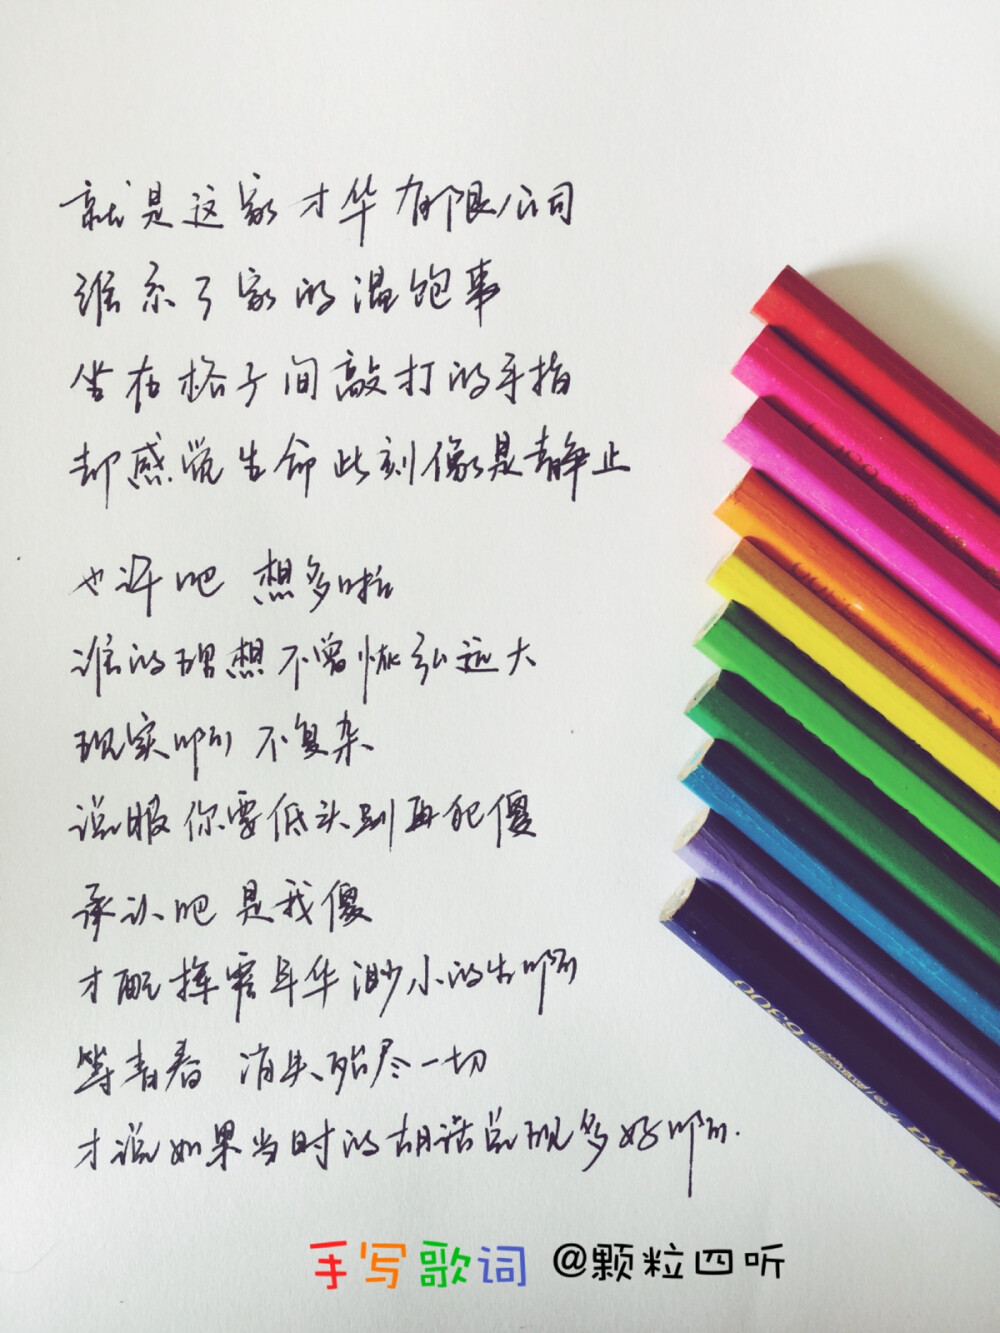 就是这家才华有限公司
谁系了家的温饱事
坐在格子间敲打的手指
却感觉生命此刻像是静止
也许吧 想多啦
谁的理想不曾恢弘远大
现实啊 不复杂
说服你要低头别再犯傻
承认吧 是我傻
才敢挥霍年华 渺小的去啊
等青春 消失殆尽一切
才说如果当时的胡话兑现多好啊.
手写歌词 @颗粒四听